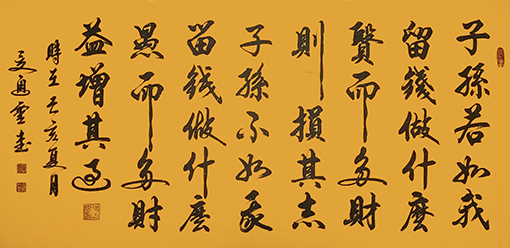 子孫若如我
留錢做什麼
賢而多財
則損其志
子孫不如我
留錢做什麼
愚而多財
益增其過
時在己亥夏月